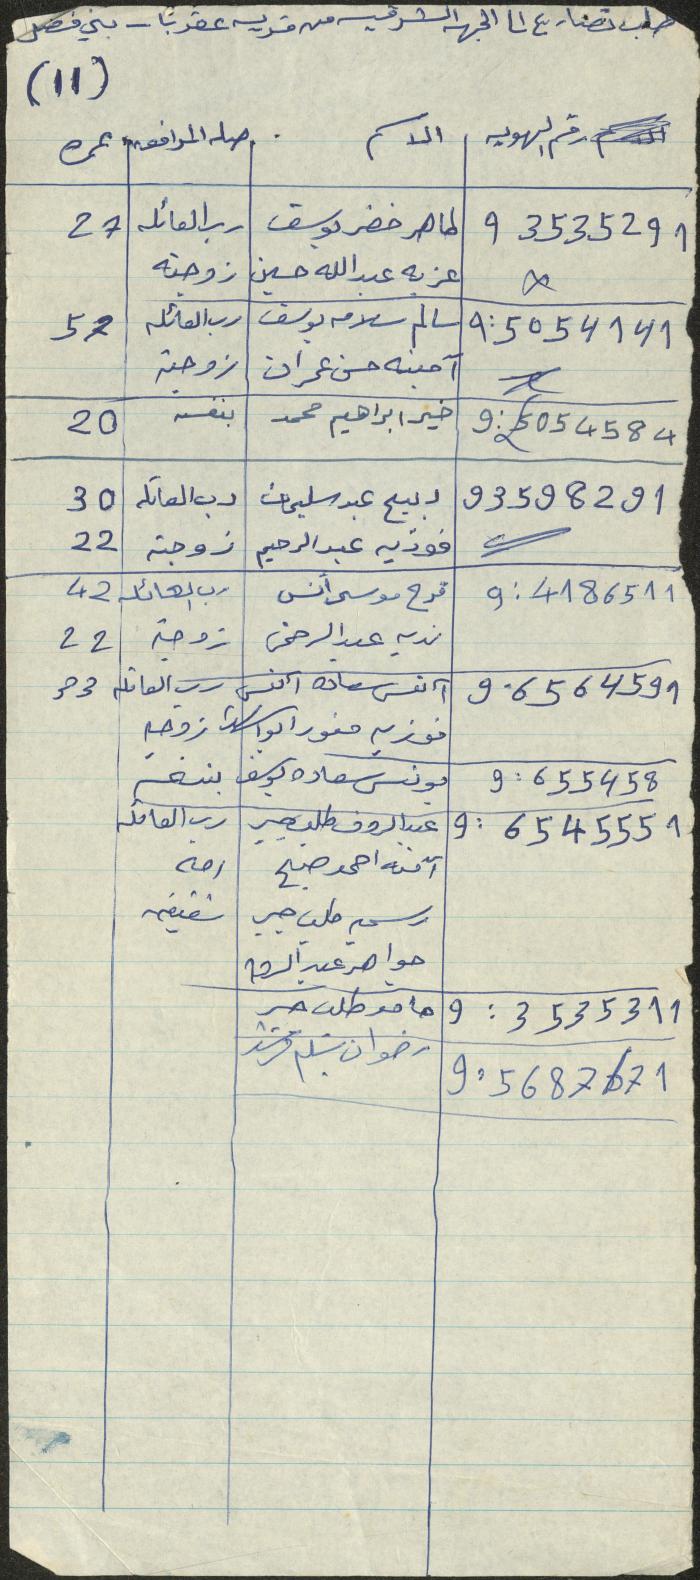 طلب تصاريح الى الجهه الشرقيه من قريه عقربا - بني فضل
(11)
رقم الهويه الاسم صله المرافقه عمره
9 3535291 طاهر خضر يوسف رب العائله 27
عزيه عبدالله حسين زوجته
9:5054141 سالم سلامه يوسف رب العائله 52
آمينه حسن عمران زوجته
9:5054584 خير ابراهيم محمد بنفسه 20
93598291 ربيع عبد سليمان رب العائله 30
فوزيه عبد الرحيم زوجته 22
9:4186511 فرج موسى أنس رب العائله 42
نديه عبد الرحمن زوجته 22
9:6564591 سعاده رب العائله 33
فوزيه زوجته
9:655458 يونس سعاده يوسف بنفسه
9: 6545551 عبد الروف طلب جبر رب العائله
آمنه احمد صبيح امه
رسميه طلب جبر شقيقته
جواهر عبد الروف
9: 3535311 حامد طلب جبر
9:5687671 رضوان